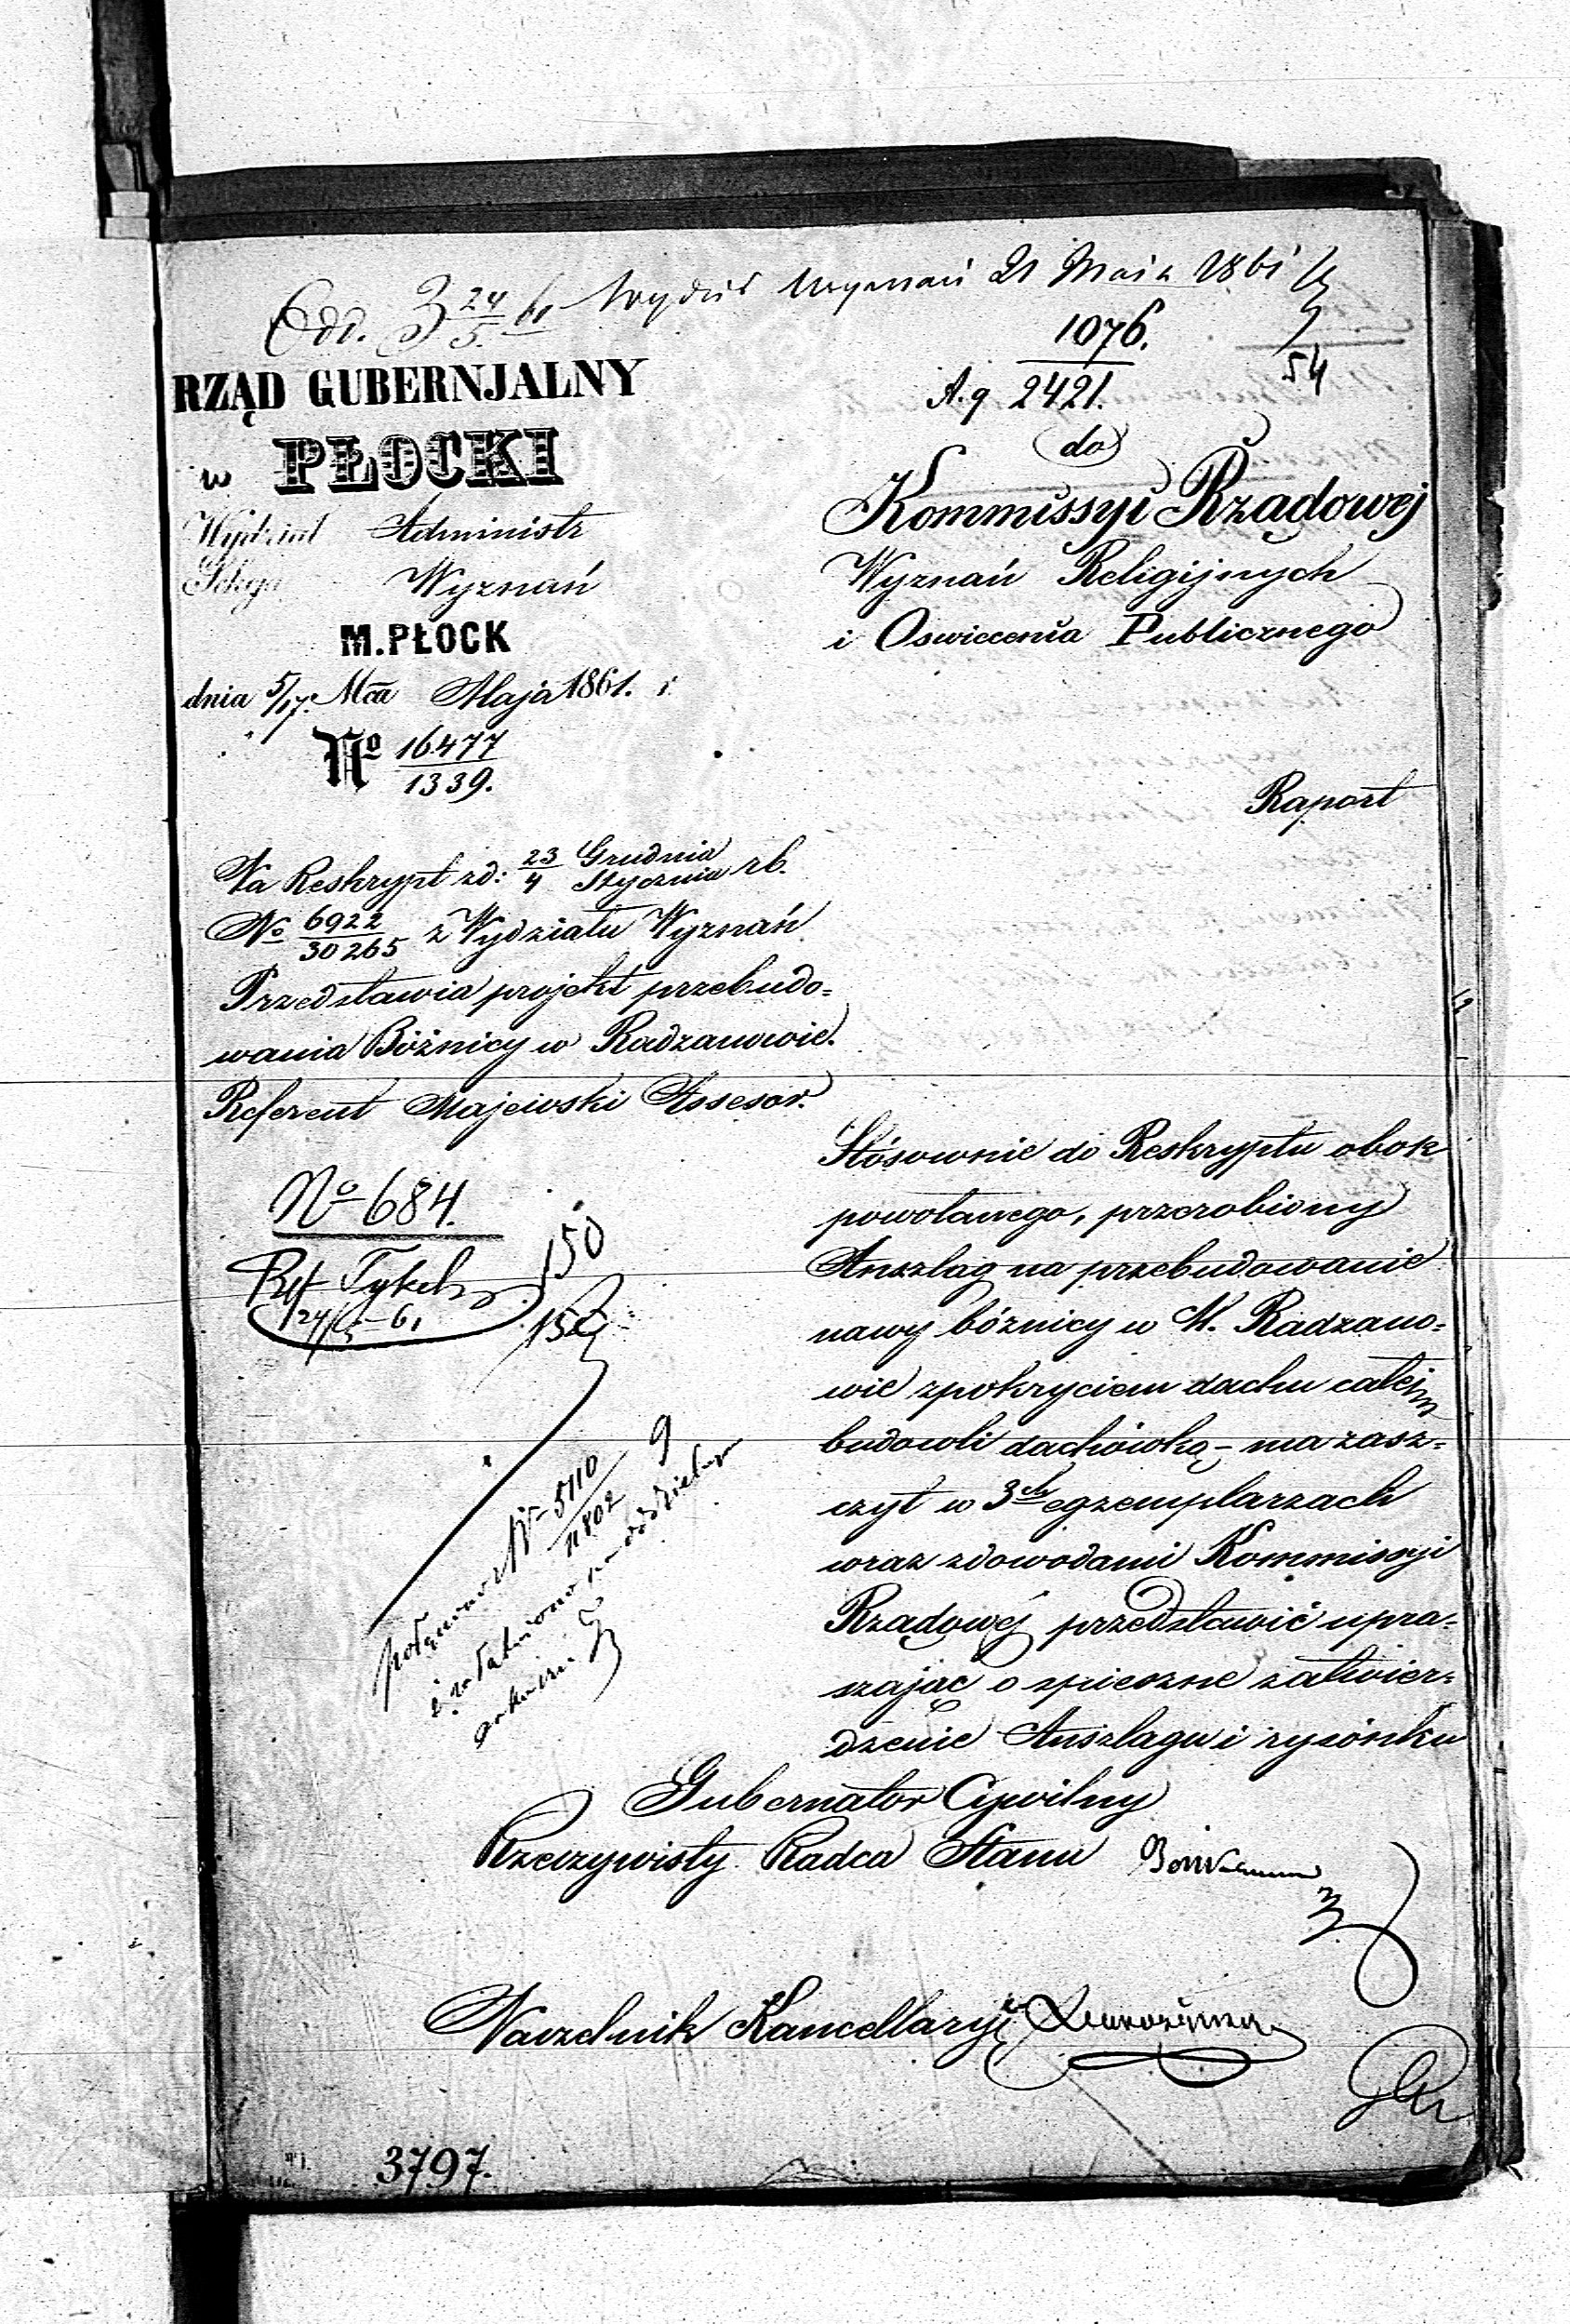 Odd. 3 24/5. 61 Wydział Wyznań 21 Maja 1861
1076.
A.g 2421.
54
RZĄD GUBERNJALNY
w PŁOCKI
Wydział Administr
Sekcya Wyznań
M.PŁOCK
dnia 5/17. Mca Maja 1861. r.
No 16477/1339.
do
Kommissyi Rządowej
Wyznań Religijnych
i Oswiecenia Publicznego
Raport
Na Reskrypt zd: 23/4 Grudnia/Stycznia rb.
No 6922/30265 z Wydziału Wyznań
Przedstawia projekt przebudo=
wania Bóżnicy w Radzanowie.
Referent Majewski Assesor.
No 684.
150
24/5-61
150
No 5110/11802 9
Stósownie do Reskryptu obok
powołanego, przerobiony
Anszlag na przebudowanie
nawy bóżnicy w M. Radzano=
wie zpokryciem dachu całej
budowli dachówką - ma zasz=
czyt w 3ch egzemplarzach
wraz zdowodami Kommissyi
Rządowéj przedstawić upra=
szając o spieszne zatwier=
dzenie Anszlagu i rysónku
Gubernator Cywilny
Rzeczywisty Radca Stanu
Naczelnik Kancellaryi
3797.